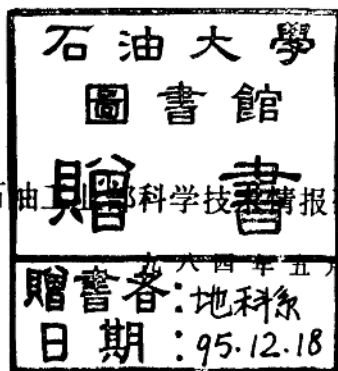 石油大學
圖書館
贈書
石油工业部科学技术情报
九八四年五月
贈書者:地科系
日期:95.12.18